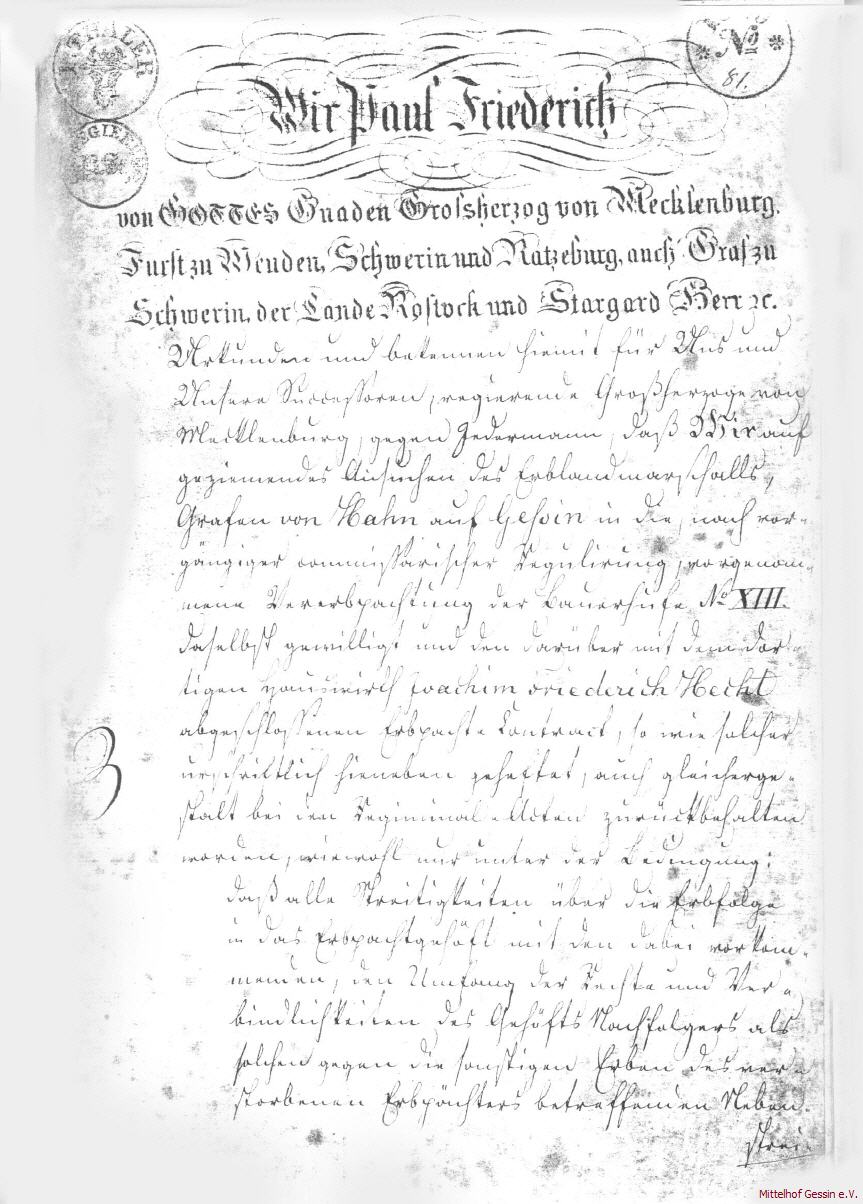 1 THALER
No
81.
Wir Paul Friederich
von GOTTES Gnaden Grossherzog von Mecklenburg,
Furst zu Wenden, Schwerin und Ratzeburg, auch Graf zu
Schwerin, der Lande Rostock und Stargard Herr ꝛc.
Urkunden und bekennen hiemit für Uns und
Unsere Successoren, regierende Großherzoge von
Mecklenburg, gegen Jedermann, daß Wir auf
geziemendes Ansuchen des Erblandmarschalls,
Grafen von Hahn auf Gessin in die, nach vor-
gängiger commissarischer Regulirung, vorgenom-
mene Vererbpachtung der Bauerhufe No XIII.
daselbst gewilligt und den darüber mit dem dor-
tigen Hauswirth Joachim Friederich Hecht
abgeschlossenen Erbpacht-Contract, so wie solcher
urschriftlich hieneben geheftet, auch gleicherge-
stalt bei den Regiminal-Acten zurückbehalten
worden, wiewohl nur unter der Bedingung:
daß alle Streitigkeiten über die Erbfolge
in das Erbpachtgehöft mit den dabei vorkom-
menden, den Umfang der Rechte und Ver-
bindlichkeiten des Gehöfts Nachfolgers als
solchen gegen die sonstigen Erben des ver-
storbenen Erbpächters betreffenden Neben-
strei-
3
Mittelhof Gessin e.V.